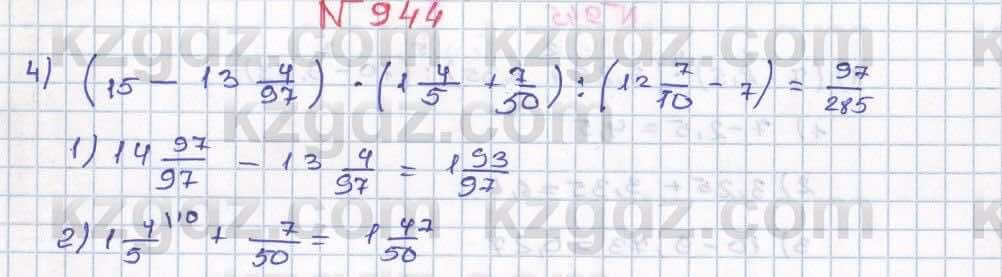 № 944
kzgdz.com kzgdz.com
4) (15 - 13 4/97) · (1 4/5 + 7/50) : (12 7/10 - 7) = 97/285
kzgdz.com
1) 14 97/97 - 13 4/97 = 1 93/97
kzgdz.com kzgdz.com
2) 1 4/5 \10 + 7/50 = 1 47/50